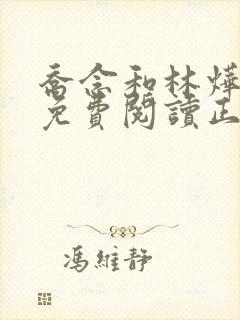 喬念和林燁
免費閱讀正
馮維靜